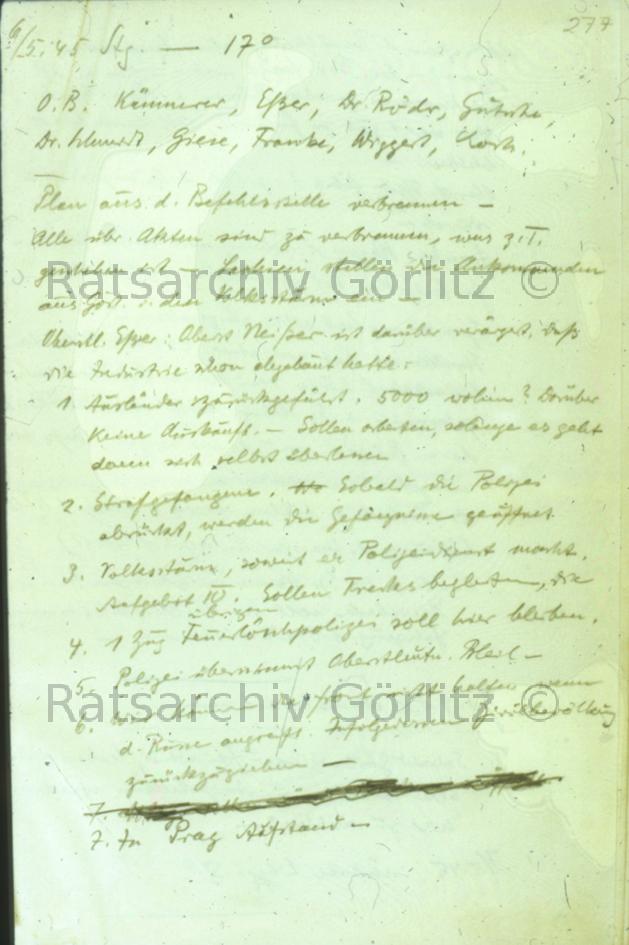 277
6/5.45 Stg. — 17°
O.B. Kämmerer, Eßer, Dr. Röder,
Dr. Schmidt, Giese, Franke, Wiggert,
Plan aus d. Befehlsstelle verbrennen —
Alle übr. Akten sind zu verbrennen, was z.T.
geschehen ist — stellen die Ankommenden
aus Görl. den Volkssturm ein —
Oberstl. Eßer: Oberst Neißer ist darüber verärgert, daß
die Industrie schon abgebaut hatte:
1. Ausländer zurückgeführt. 5000 wohin? Darüber
keine Auskunft. — Sollen arbeiten, solange es geht
dann sich selbst überlassen
2. Strafgefangene. Sobald die Polizei
abrückt, werden die Gefängnisse geöffnet
3. Volkssturm, soweit er Polizeidienst macht,
Aufgebot IV. Sollen Trecks begleiten, die
übrigen
4. 1 Zug Feuerlöschpolizei soll hier bleiben.
5. Polizei übernimmt Oberstleutn. —
6. nicht halten wenn
d. Russe angreift. Infolgedessen Zivilbevölkung
zurückzuziehen —
7.
7. In Prag Aufstand —
Ratsarchiv Görlitz ©
Ratsarchiv Görlitz ©